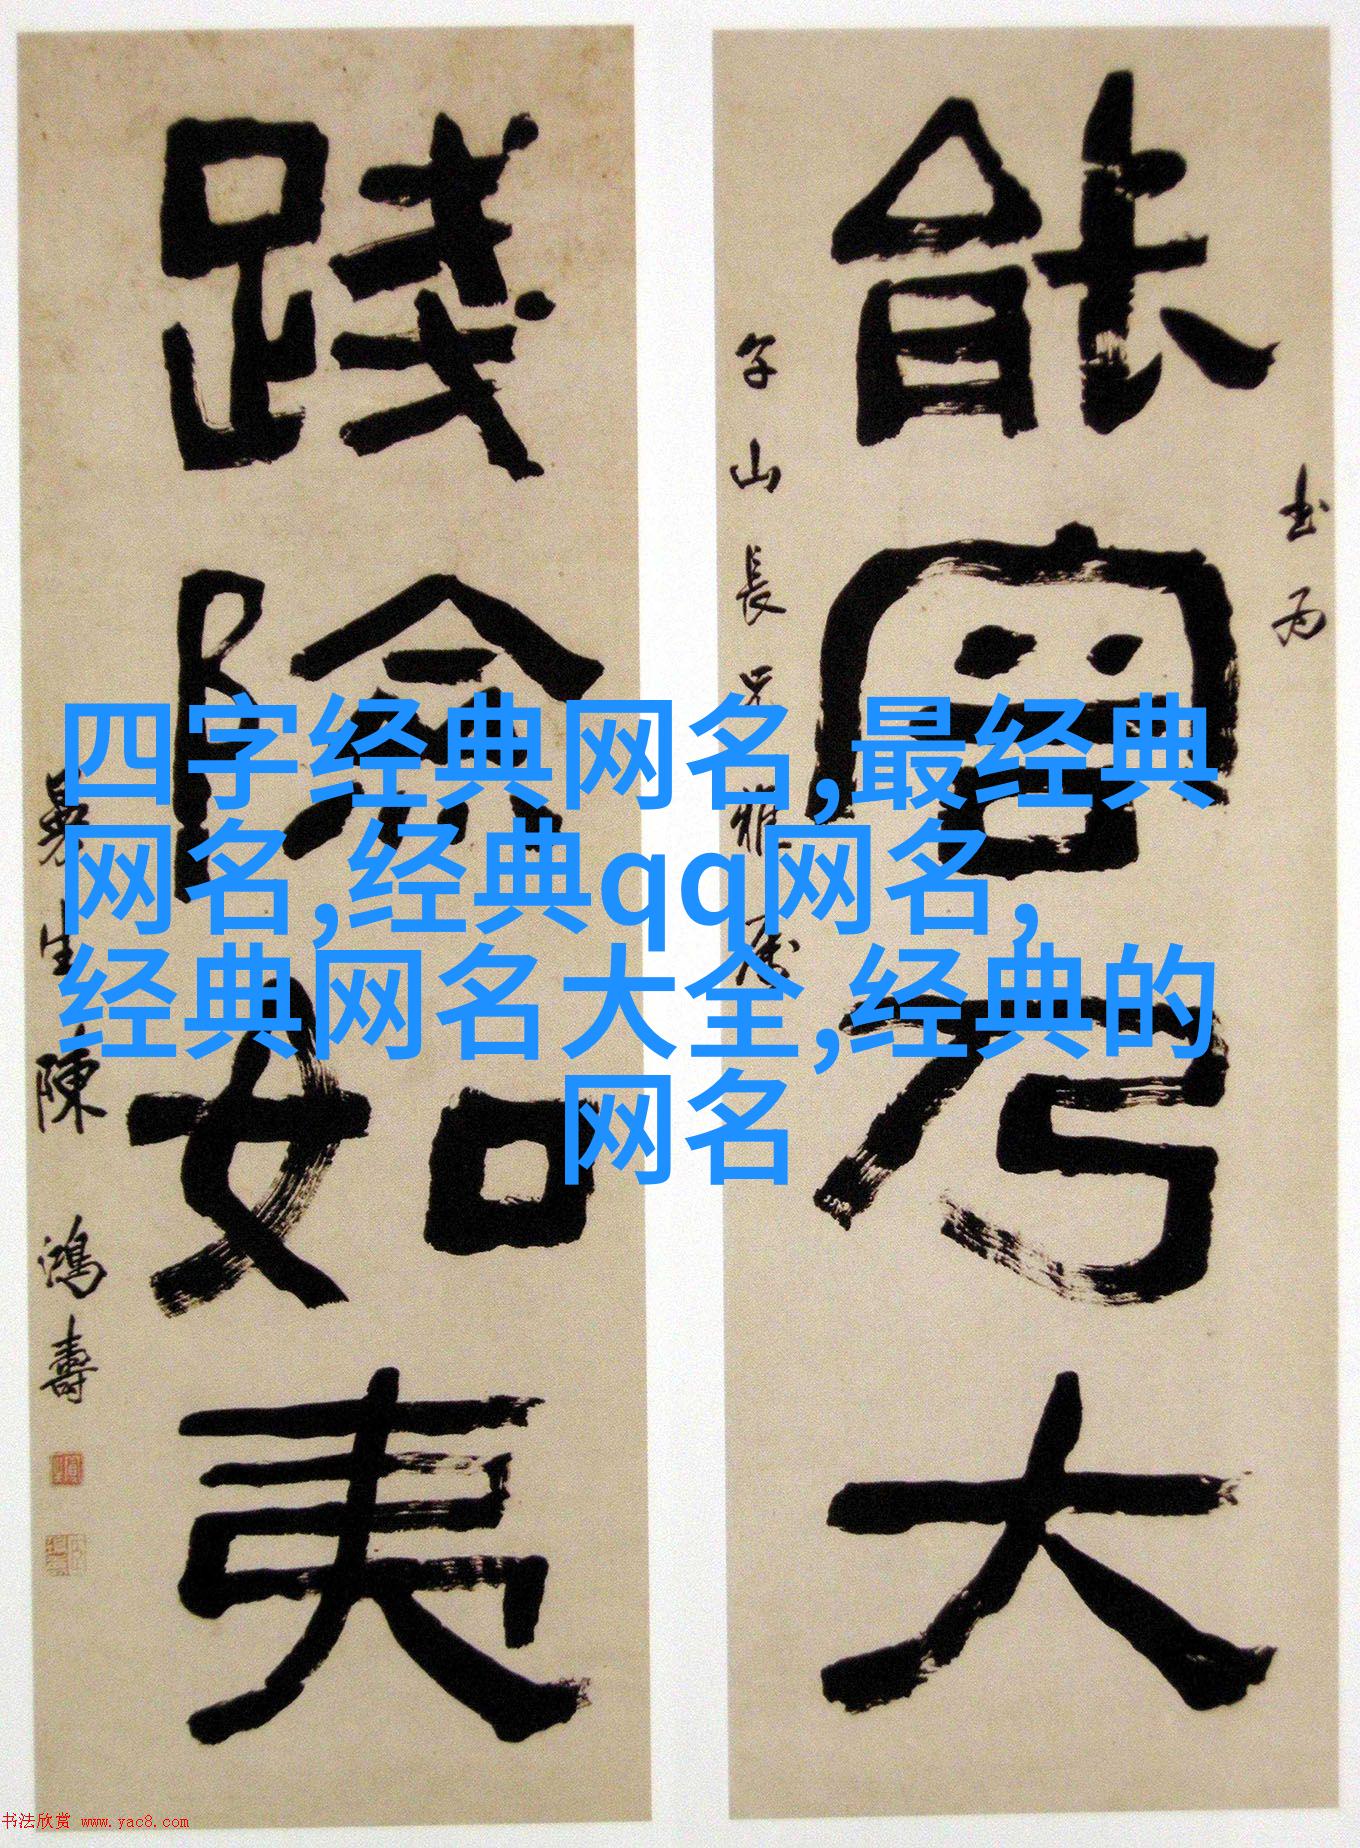 能容乃大
書為
午山長兄雅屬
踐險如夷
曼生陳鴻壽
四字经典网名,最经典
网名,经典qq网名,
经典网名大全,经典的
网名
书法欣赏 www.yac8.com